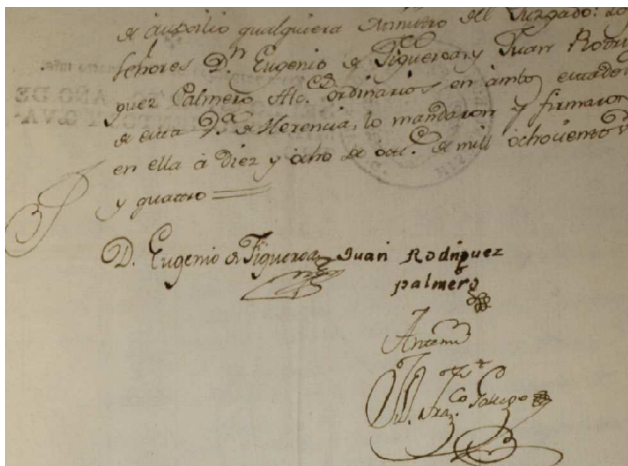 de auxilio qualquiera Ministro del Juzgado: los
señores Dn. Eugenio de Figueroa y Juan Rodri
guez Palmero Alcd. ordinarios en ambos estados
de esta Va. de Herencia, lo mandaron y firmaron
en ella à Diez y ocho de de mill ochocientos
y quatro
D. Eugenio de Figueroa Juan Rodriguez
palmero
Antemi
Franco. Gallego